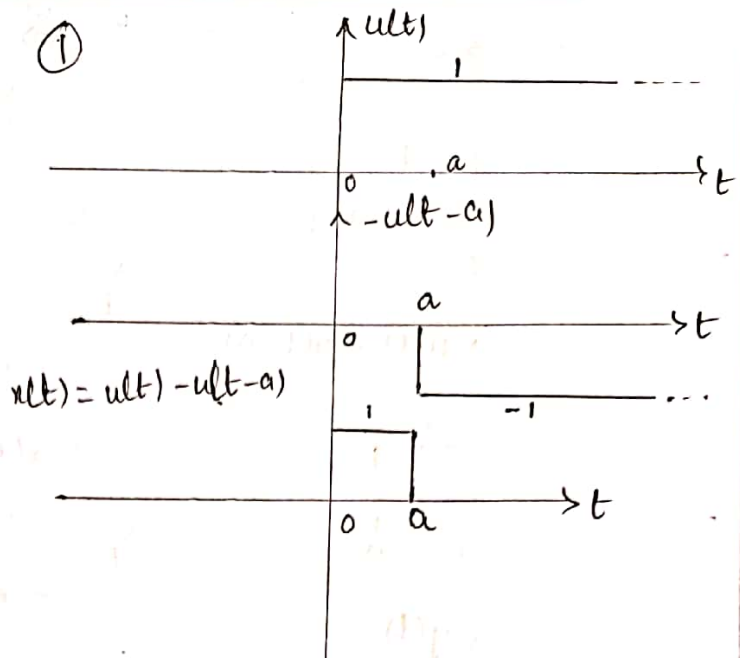 ①
u(t)
1
a
0
t
-u(t-a)
a
0
t
x(t) = u(t) - u(t-a)
-1
1
0
a
t